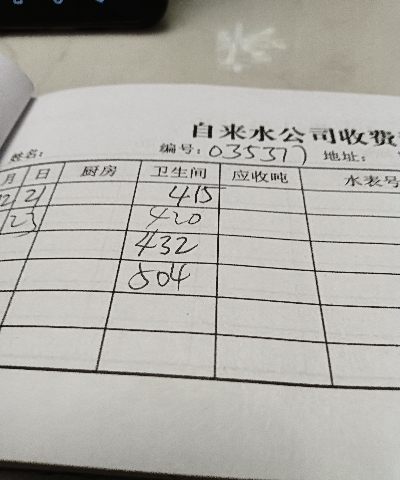 自来水公司收费
姓名: 编号: 035377 地址:
月 日 厨房 卫生间 应收吨 水表号
12 21 415
23 420
432
504